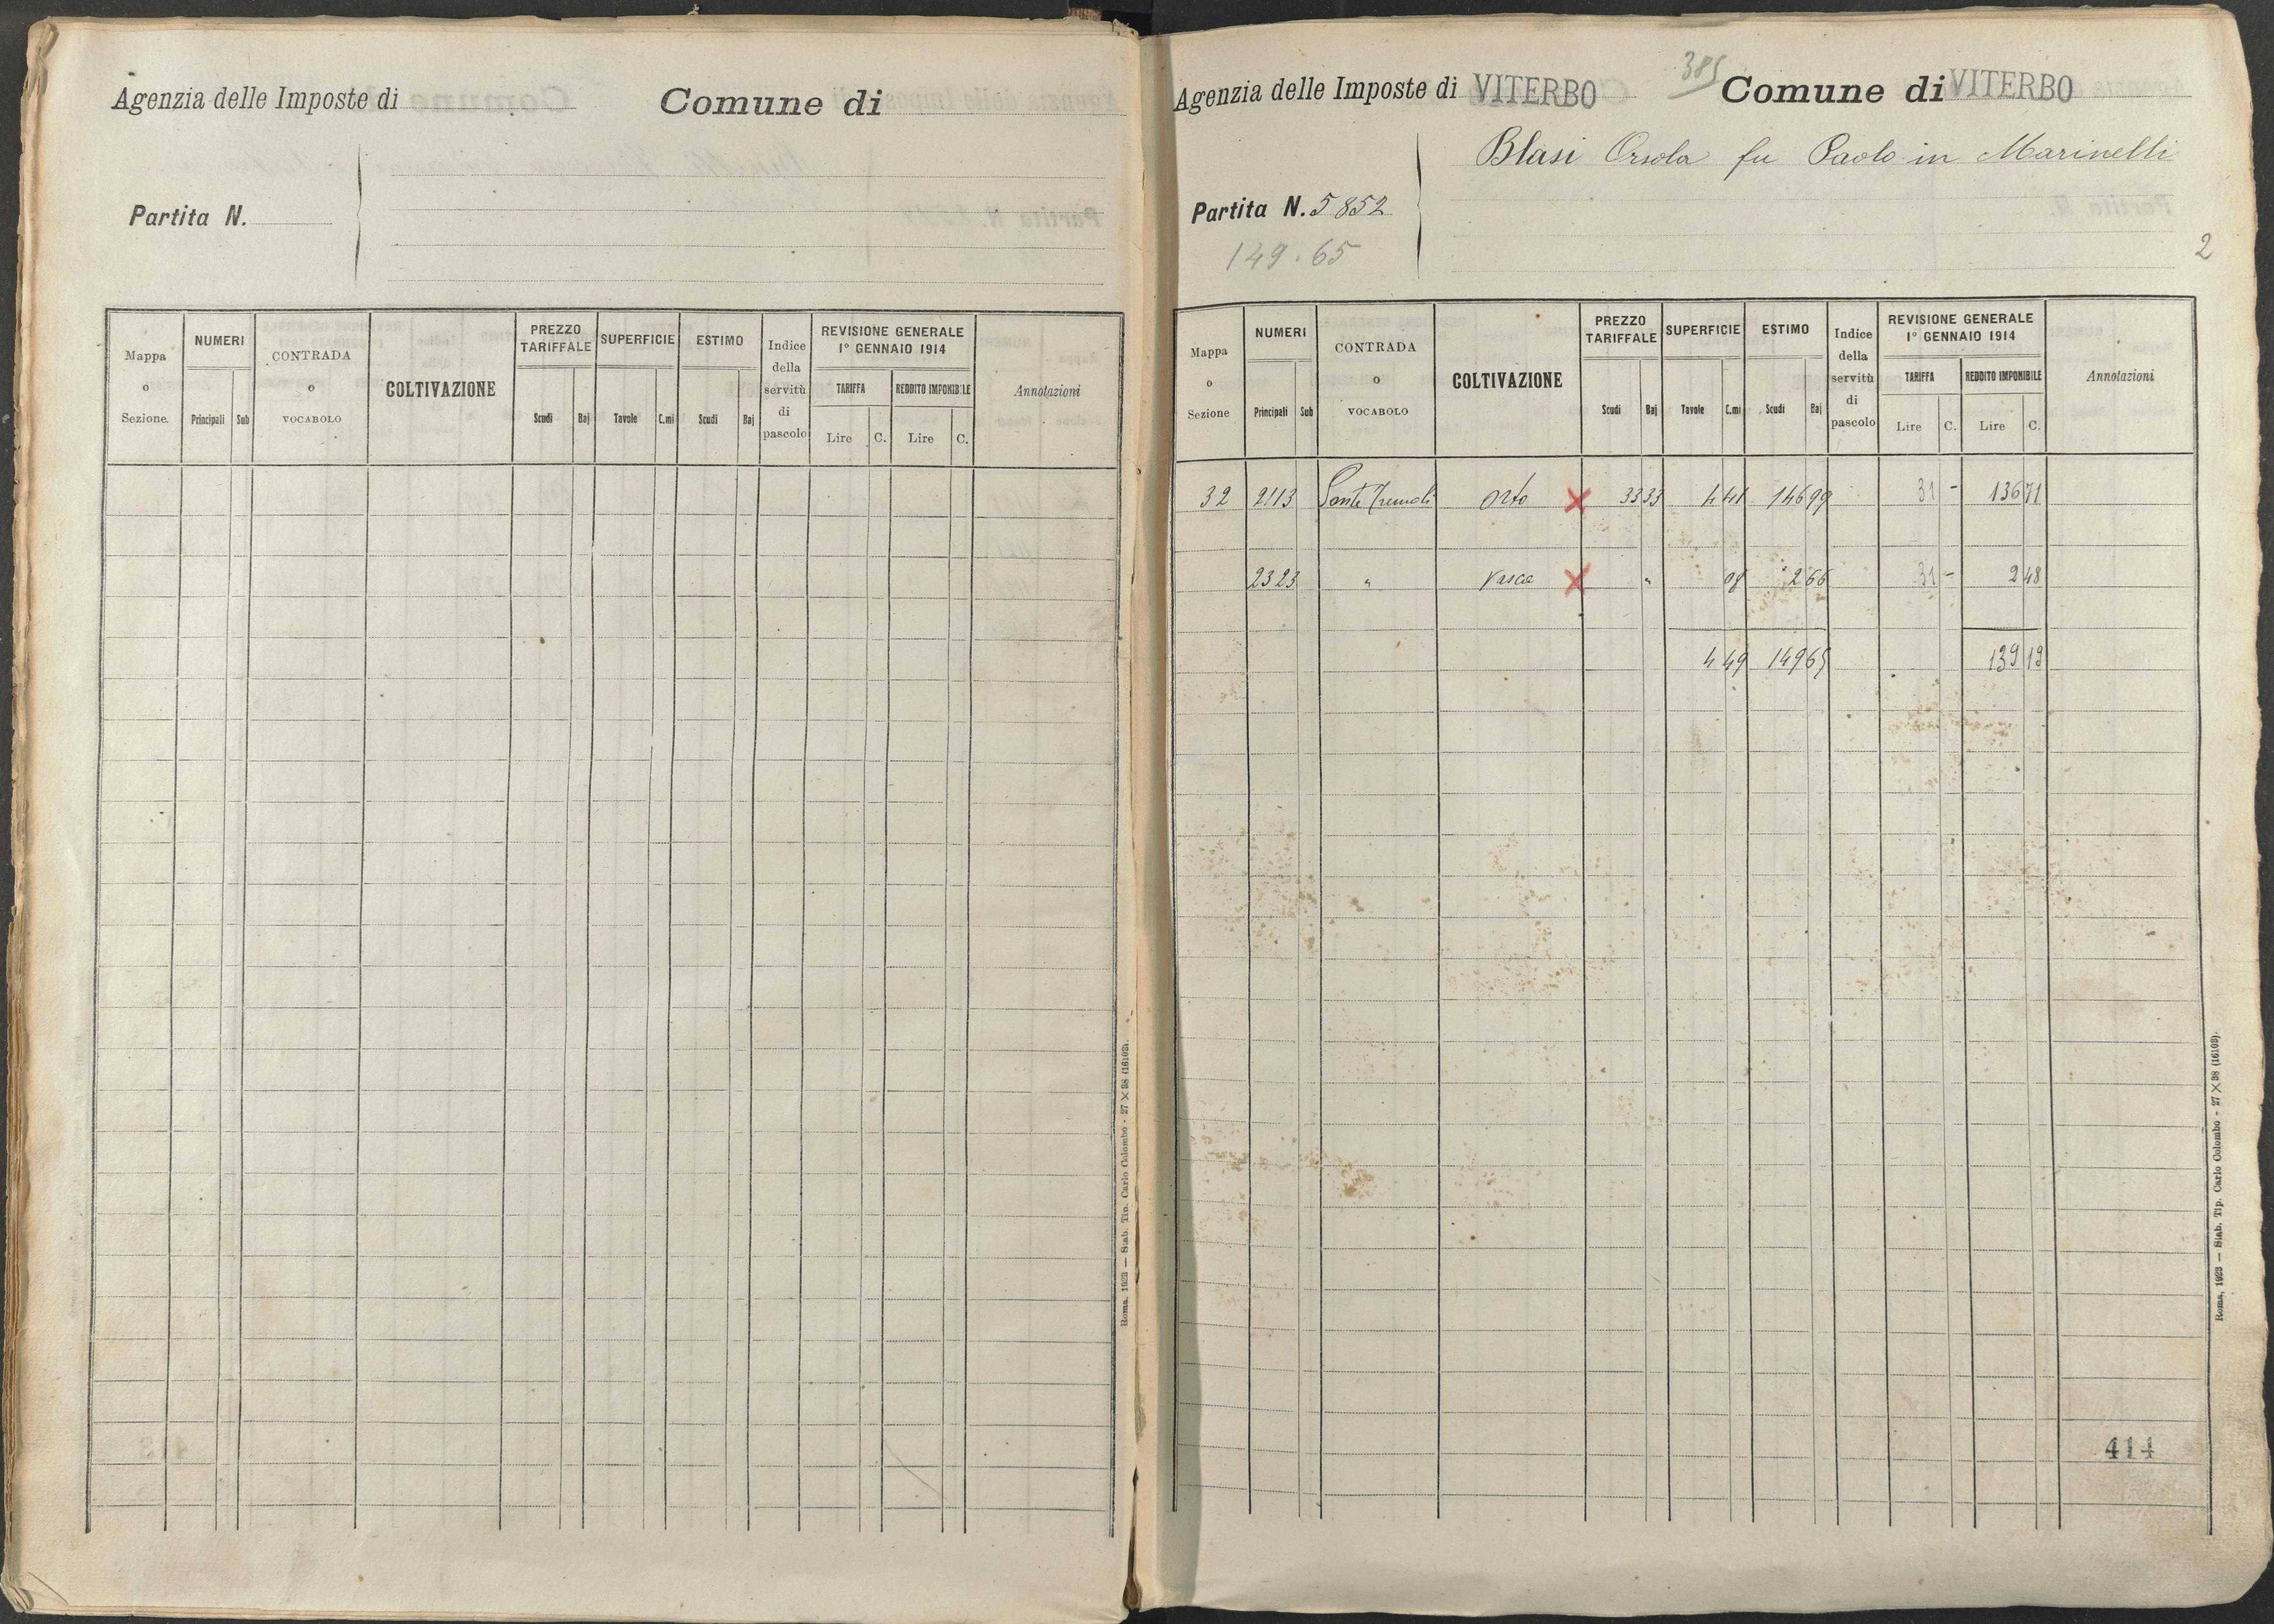 Agenzia delle Imposte di
Comune di
Partita N.
Mappa o Sezione.
NUMERI
Principali Sub
CONTRADA o VOCABOLO
COLTIVAZIONE
PREZZO TARIFFALE
Scudi Baj
SUPERFICIE
Tavole C.mi
ESTIMO
Scudi Baj
Indice della servitù di pascolo
REVISIONE GENERALE
1° GENNAIO 1914
TARIFFA
Lire C.
REDDITO IMPONIBILE
Lire C.
Annotazioni
Roma, 1923 — Stab. Tip. Carlo Colombo - 27 × 38 (16103).
385
Agenzia delle Imposte di VITERBO Comune di VITERBO
Blasi Orsola fu Paolo in Marinelli
Partita N. 5852
149.65
2
Mappa o Sezione
NUMERI
Principali Sub
CONTRADA o VOCABOLO
COLTIVAZIONE
PREZZO TARIFFALE
Scudi Baj
SUPERFICIE
Tavole C.mi
ESTIMO
Scudi Baj
Indice della servitù di pascolo
REVISIONE GENERALE
1° GENNAIO 1914
TARIFFA
Lire C.
REDDITO IMPONIBILE
Lire C.
Annotazioni
32 2113 Ponte Tremoli Orto × 33 33 4 41 146 99 31 - 136 71
2323 " Vasca × " 08 2 66 31 - 2 48
4 49 149 65 139 19
414
Roma, 1923 — Stab. Tip. Carlo Colombo - 27 × 38 (16103).